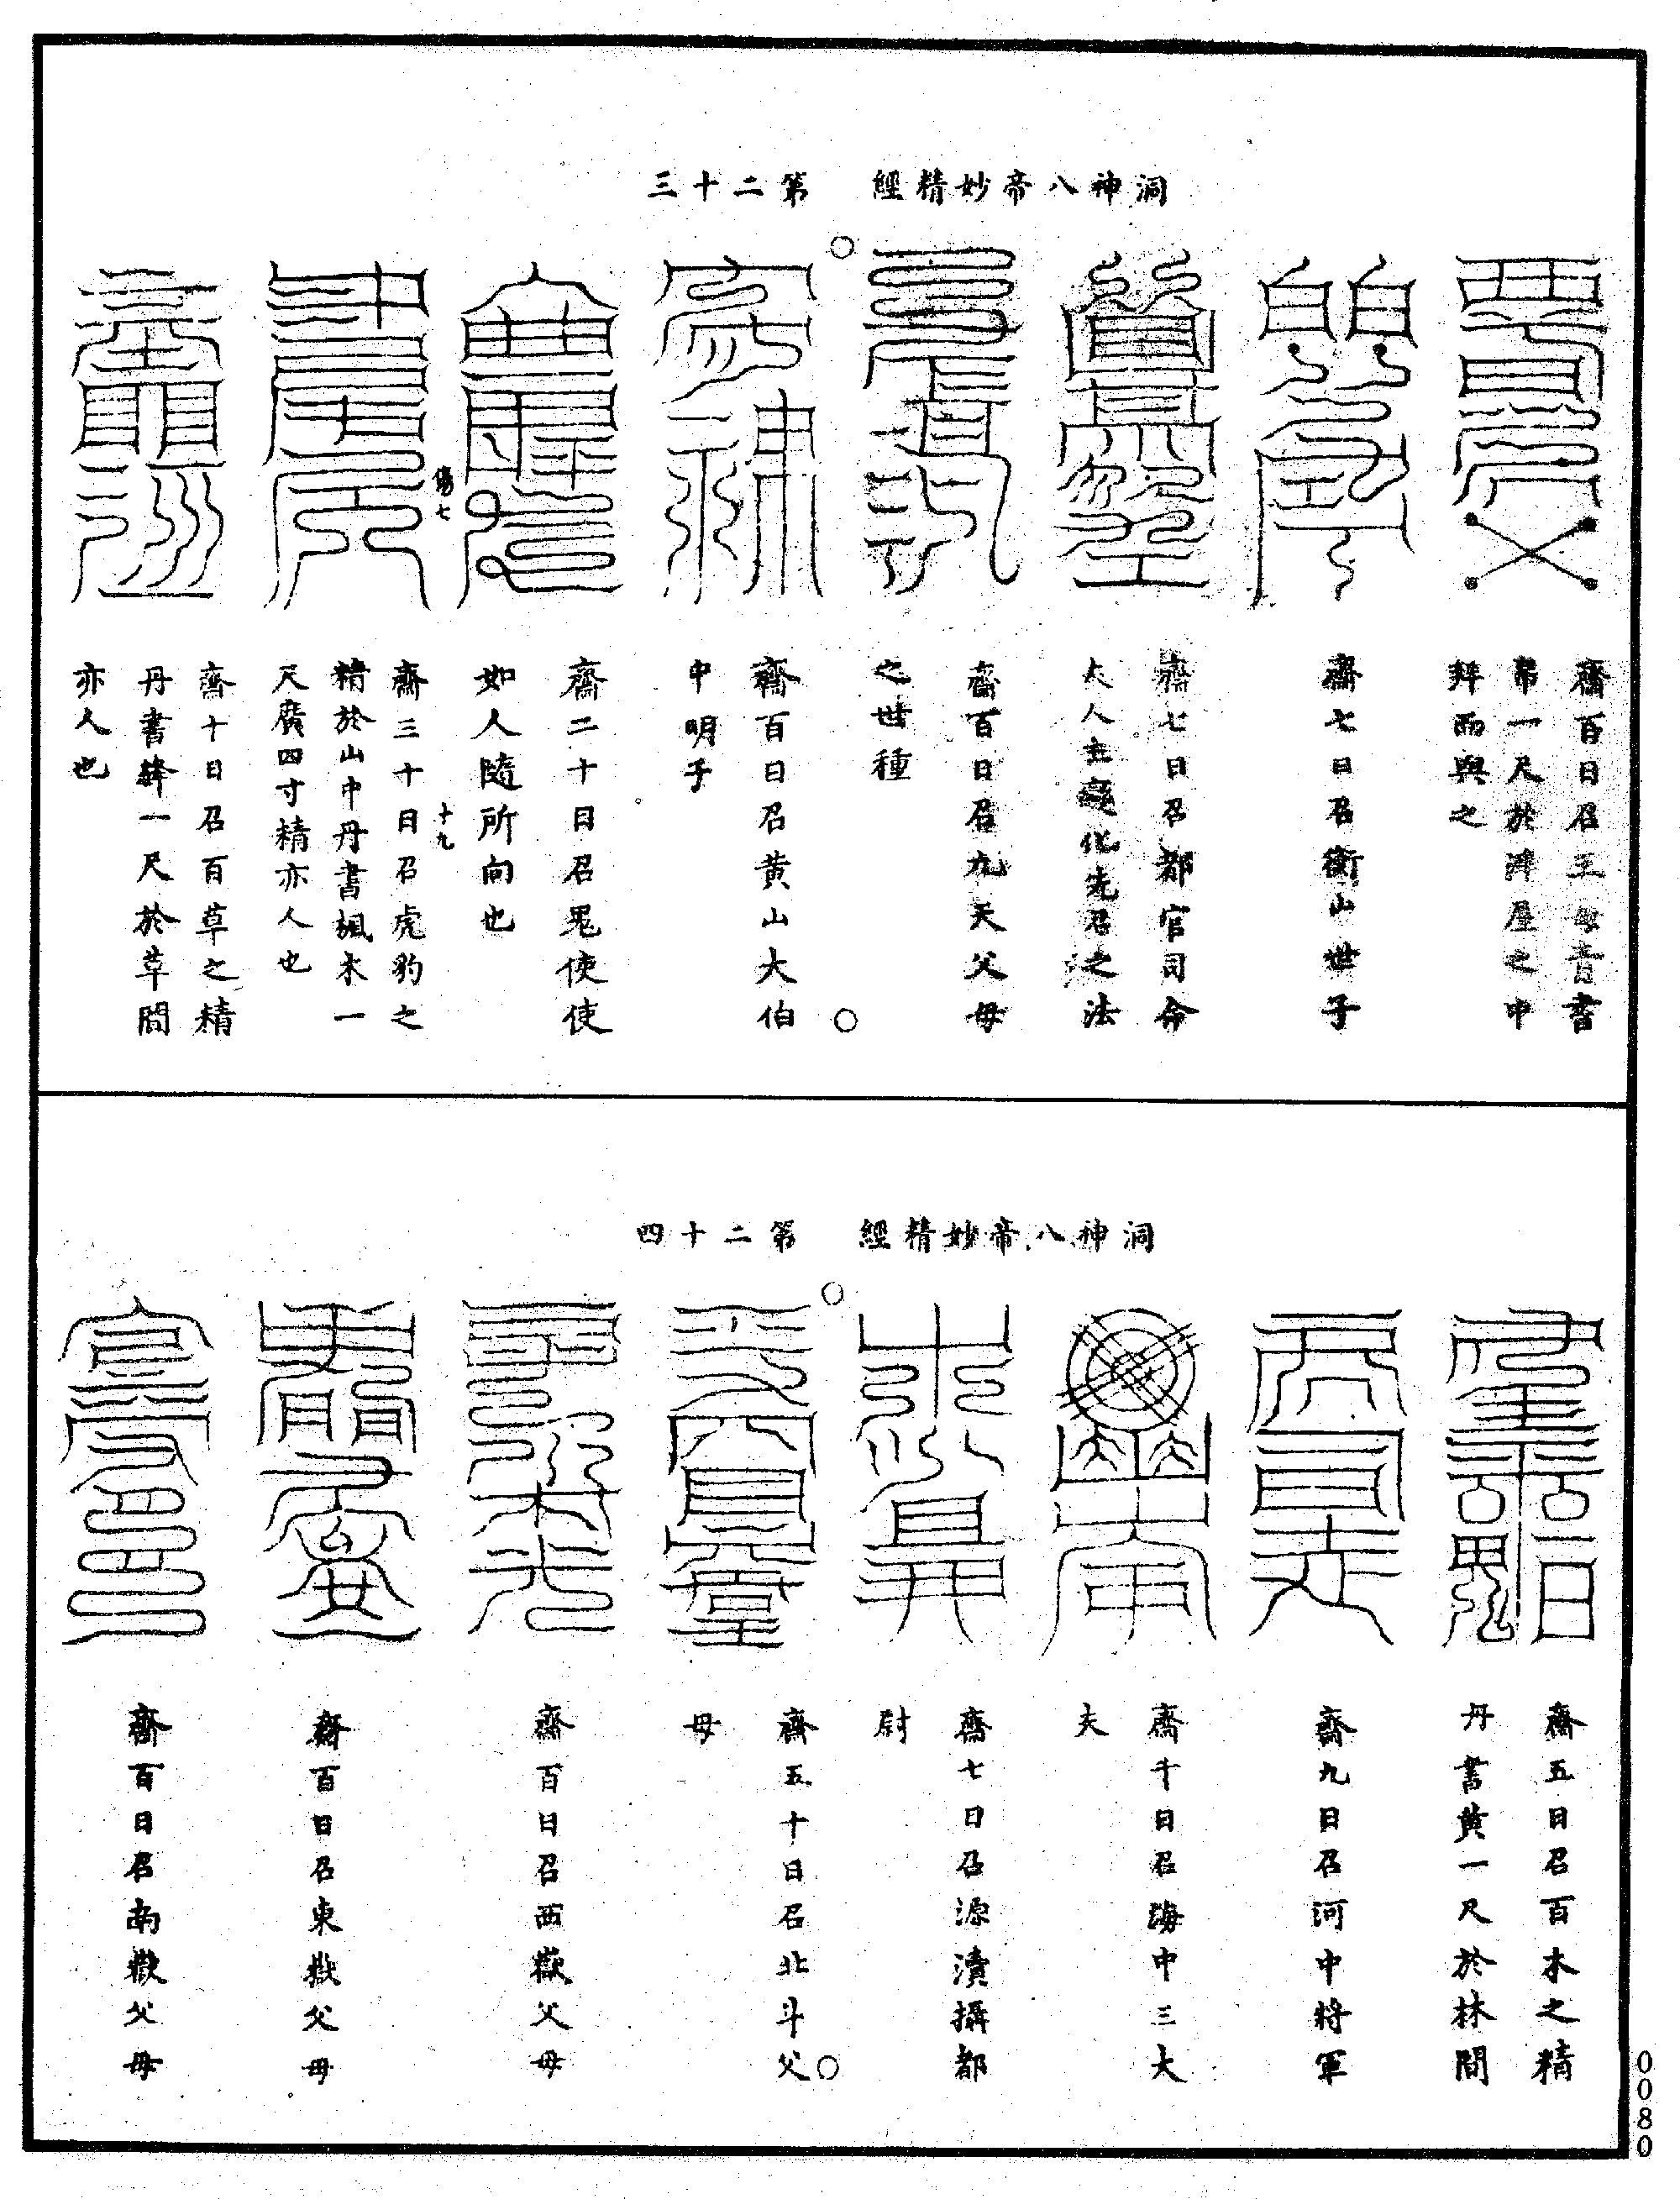 洞神八帝妙精經　第二十三
齋百日召王母青書
帛一尺於淨屋之中
拜而與之
齋七日召衡山世子
齋七日召都官司命
太人主變化先召之法
齋百日召九天父母
之世種
齋百日召黄山大伯
中明子
齋二十日召鬼使使
如人隨所向也
傷七
十九
齋三十日召虎豹之
精於山中丹書楓木一
尺廣四寸精亦人也
齋十日召百草之精
丹書絳一尺於草間
亦人也
洞神八帝妙精經　第二十四
齋五日召百木之精
丹書黄一尺於林間
齋九日召河中將軍
齋千日召海中三大
夫
齋七日召源瀆攝都
尉
齋五十日召北斗父
母
齋百日召西嶽父母
齋百日召東嶽父母
齋百日召南嶽父母
0080